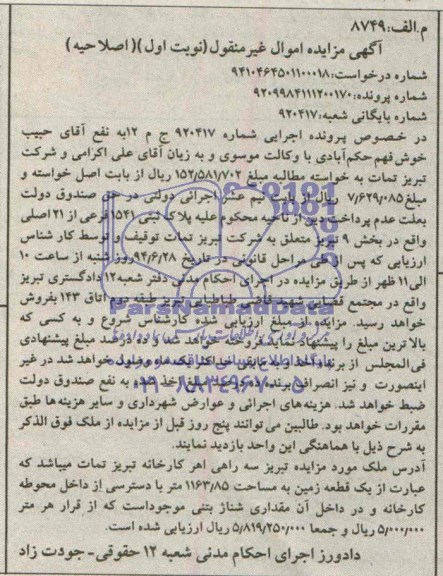 م.الف:۸۷۴۹
آگهی مزایده اموال غیرمنقول(نوبت اول)(اصلاحیه)
شماره درخواست:۹۴۱۰۴۶۴۵۰۱۱۰۰۰۱۸
شماره پرونده:۹۲۰۹۹۸۴۱۱۱۲۰۰۱۷۰
شماره بایگانی شعبه:۹۲۰۴۱۷
در خصوص پرونده اجرایی شماره ۹۲۰۴۱۷ ج م ۱۲به نفع آقای حبیب
خوش فهم حکم‌آبادی با وکالت موسوی و به زیان آقای علی اکرامی و شرکت
تبریز تمات به خواسته مطالبه مبلغ ۱۵۲/۵۸۱/۷۰۲ ریال از بابت اصل خواسته و
مبلغ ۷/۶۲۹/۰۸۵ ریال از بابت نیم عشر اجرائی دولتی در حق صندوق دولت
بعلت عدم پرداخت دین از ناحیه محکوم علیه پلاک ثبتی ۱۵۴۱ فرعی از ۲۱ اصلی
واقع در بخش ۹ تبریز متعلق به شرکت تبریز تمات توقیف و توسط کارشناس
ارزیابی که پس از طی مراحل قانونی در تاریخ ۹۴/۶/۲۸ روز شنبه از ساعت ۱۰
الی۱۱ ظهر از طریق مزایده در اجرای احکام مدنی دفتر شعبه۱۲ دادگستری تبریز
واقع در مجتمع قضایی شهید قاضی طباطبایی تبریز طبقه دوم اتاق ۱۴۳ بفروش
خواهد رسید. مزایده از مبلغ ارزیابی شده کارشناس شروع و به کسی که
بالاترین مبلغ را پیشنهاد نماید فروخته خواهد شد ده درصد مبلغ پیشنهادی
فی‌المجلس از برنده اخذ و به مابقی حداکثر یک ماه وصول خواهد شد در غیر
اینصورت و نیز انصراف برنده ده درصد مبلغ اخذ شده به نفع صندوق دولت
ضبط خواهد شد. هزینه‌های اجرائی و عوارض شهرداری و سایر هزینه‌ها طبق
مقررات خواهد بود. طالبین می‌توانند پنج روز قبل از مزایده از ملک فوق الذکر
به شرح ذیل با هماهنگی این واحد بازدید نمایند.
آدرس ملک مورد مزایده تبریز سه راهی اهر کارخانه تبریز تمات میباشد که
عبارت از یک قطعه زمین به مساحت ۱۱۶۳/۸۵ متر با دسترسی از داخل محوطه
کارخانه و در داخل آن مقداری شناژ بتنی موجوداست که از قرار هر متر
۵/۰۰۰/۰۰۰ ریال و جمعا ۵/۸۱۹/۲۵۰/۰۰۰ ریال ارزیابی شده است.
دادورز اجرای احکام مدنی شعبه ۱۲ حقوقی-جودت زاد
ParsNamadData
۰۲۱-۸۸۳۴۹۶۷۰-۵